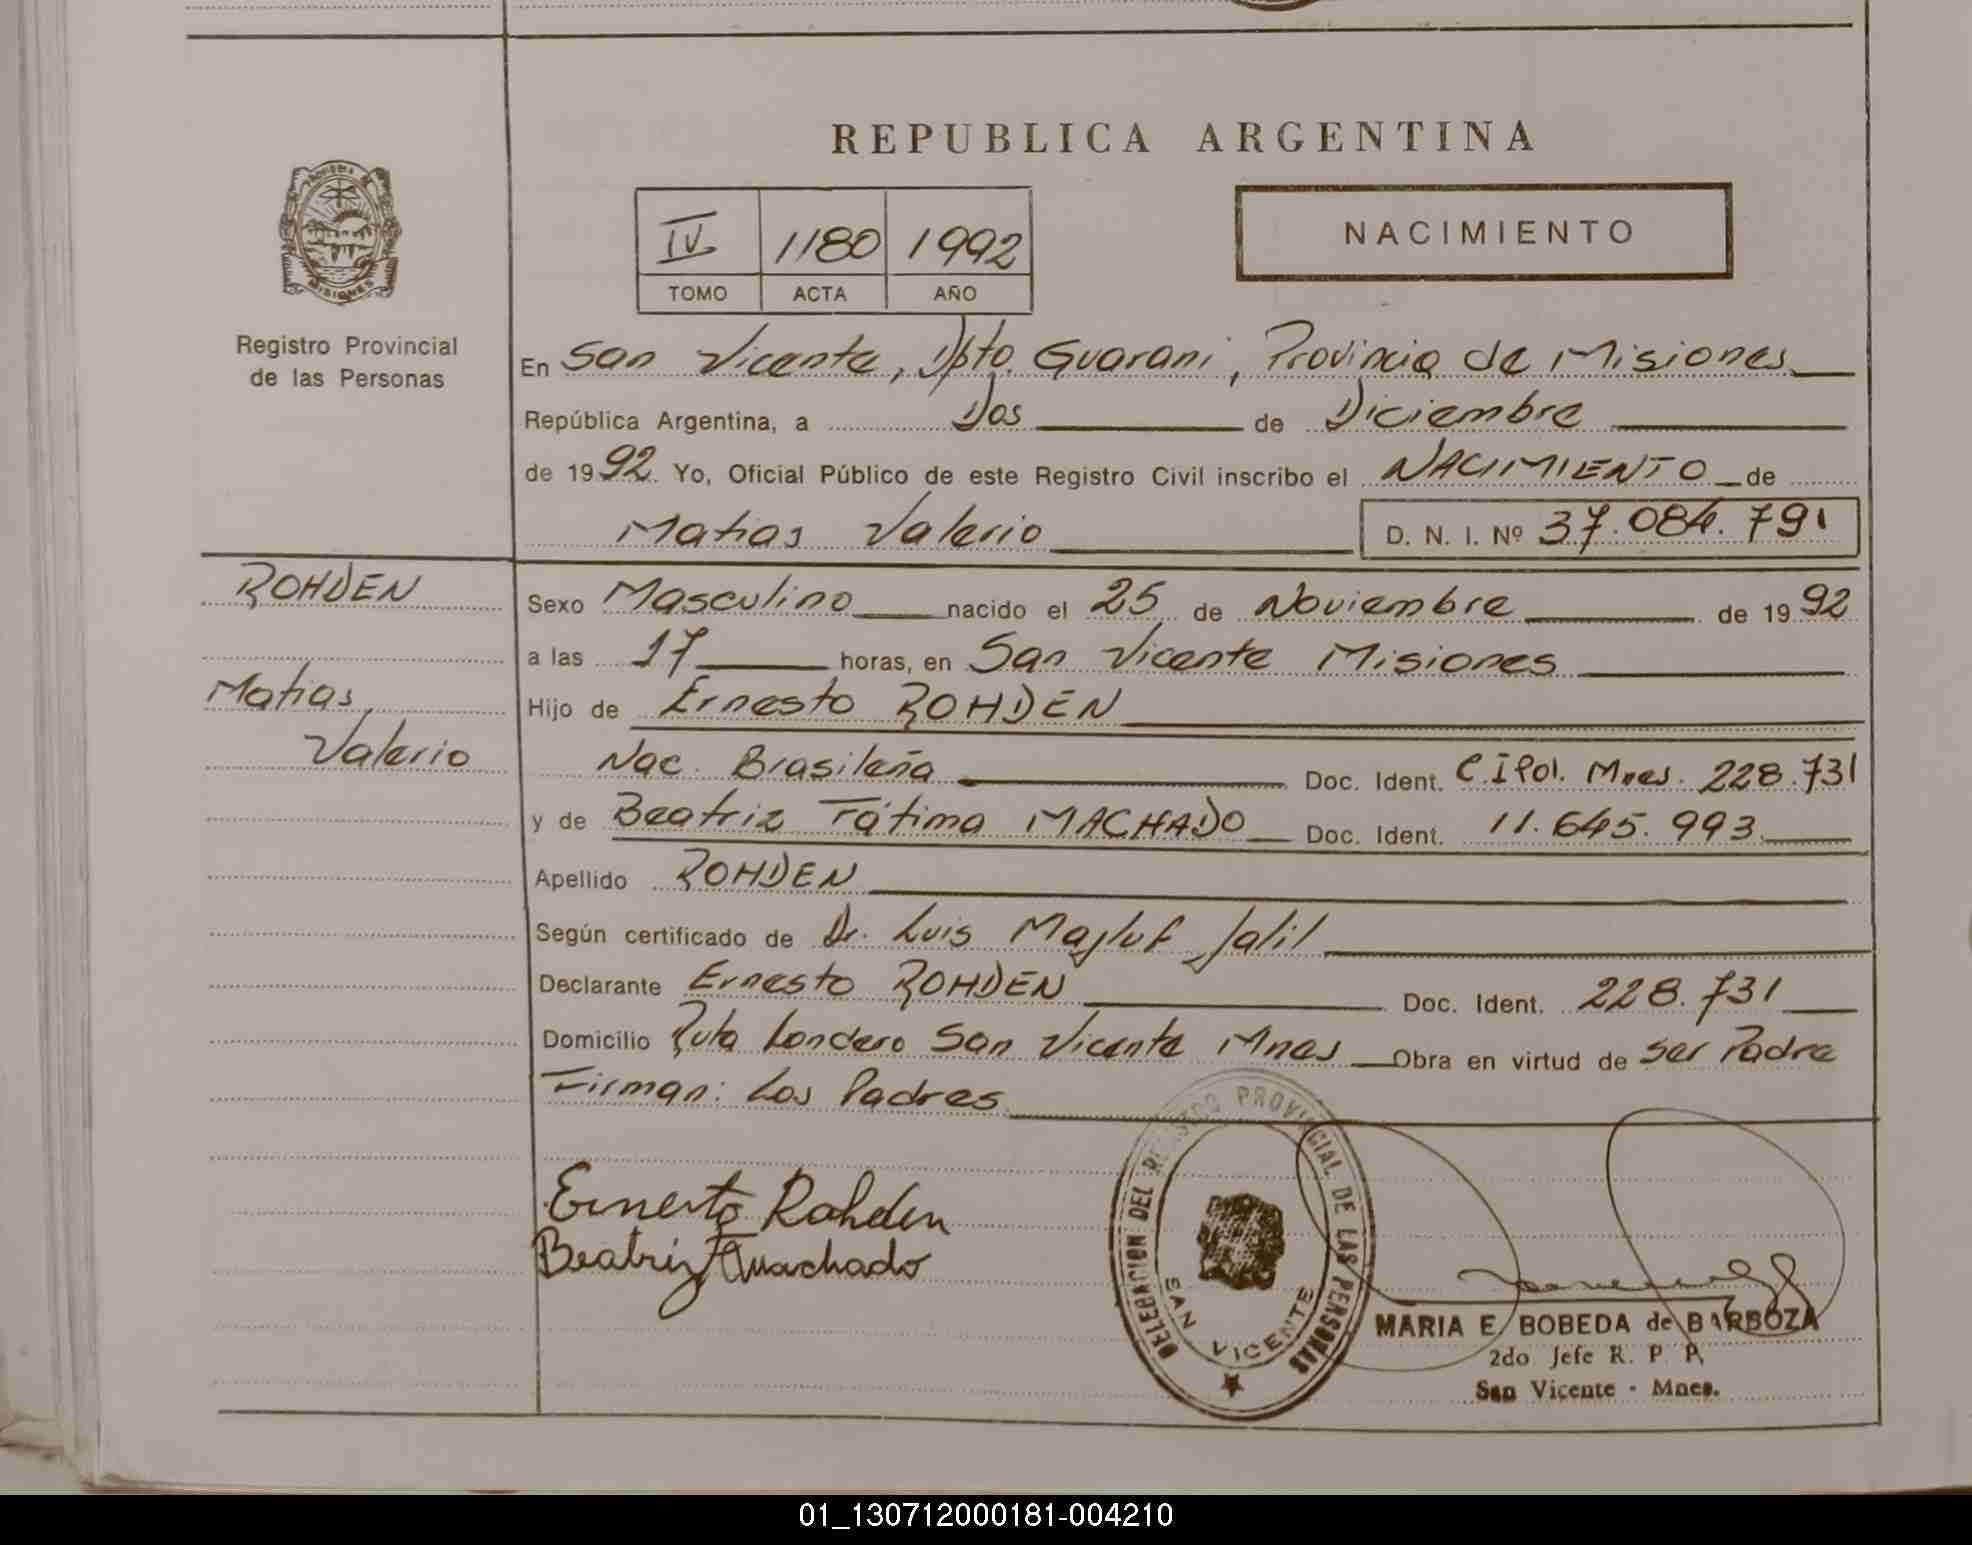 REPUBLICA ARGENTINA
PROVINCIA DE MISIONES
Registro Provincial
de las Personas
IV 1180 1992
TOMO ACTA AÑO
NACIMIENTO
En San Vicente, Dpto. Guarani, Provincia de Misiones
República Argentina, a Dos de Diciembre
de 1992. Yo, Oficial Público de este Registro Civil inscribo el NACIMIENTO de
Matias Valerio D. N. I. Nº 37.084.791
ROHDEN
Matias
Valerio
Sexo Masculino nacido el 25 de Noviembre de 1992
a las 17 horas, en San Vicente Misiones
Hijo de Ernesto ROHDEN
Nac. Brasileña Doc. Ident. C.I Pol. Mnes. 228.731
y de Beatriz Fátima MACHADO Doc. Ident. 11.645.993
Apellido ROHDEN
Según certificado de Dr. Luis Majluf Jalil
Declarante Ernesto ROHDEN Doc. Ident. 228.731
Domicilio Ruta Londero San Vicente Mnes Obra en virtud de ser Padre
Firman: Los Padres
Ernesto Rohden
Beatriz F machado
DELEGACION DEL REGISTRO PROVINCIAL DE LAS PERSONAS
SAN VICENTE
MARIA E. BOBEDA de BARBOZA
2do Jefe R. P. P.
San Vicente - Mnes.
01_130712000181-004210